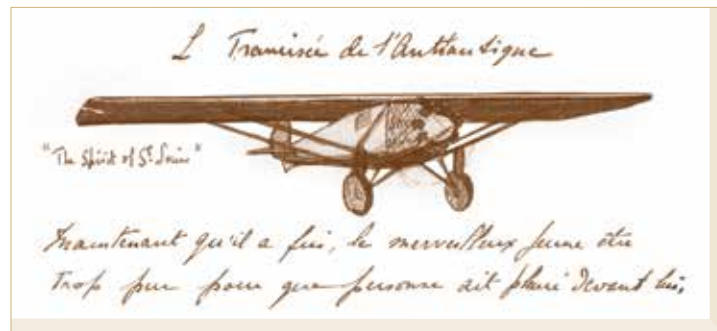 L Traversée de l'Antlantique
"The Spirit of St. Louis"
Maintenant qu'il a fui, le merveilleux jeune être
Trop pur pour que personne ait plané devant lui,